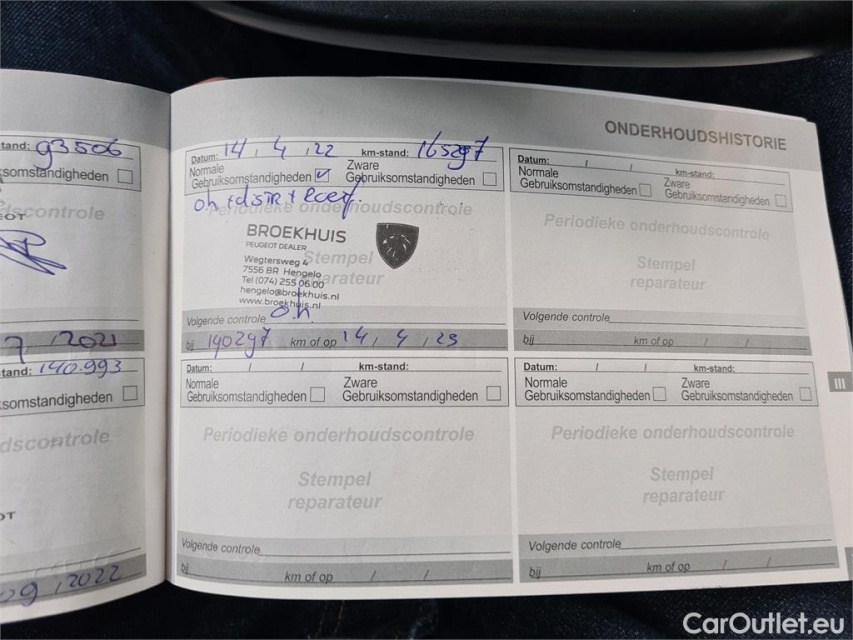 ONDERHOUDSHISTORIE
tand: 93506
somstandigheden
dscontrole
7 / 2021
tand: 140.993
somstandigheden
dscontrole
09 / 2022
Datum: 14 / 4 / 22 km-stand: 165297
Normale Zware
Gebruiksomstandigheden Gebruiksomstandigheden
Periodieke onderhoudscontrole
BROEKHUIS
PEUGEOT DEALER
Stempel
reparateur
Wegtersweg 4
7556 BR Hengelo
Tel (074) 255 06 00
hengelo@broekhuis.nl
www.broekhuis.nl
Volgende controle o.h.
bij 190297 km of op 14 / 4 / 23
Datum: / / km-stand:
Normale Zware
Gebruiksomstandigheden Gebruiksomstandigheden
Periodieke onderhoudscontrole
Stempel
reparateur
Volgende controle
bij km of op / /
Datum: / / km-stand:
Normale Zware
Gebruiksomstandigheden Gebruiksomstandigheden
Periodieke onderhoudscontrole
Stempel
reparateur
Volgende controle
bij km of op / /
Datum: / / km-stand:
Normale Zware
Gebruiksomstandigheden Gebruiksomstandigheden
Periodieke onderhoudscontrole
Stempel
reparateur
Volgende controle
bij km of op / /
III
CarOutlet.eu